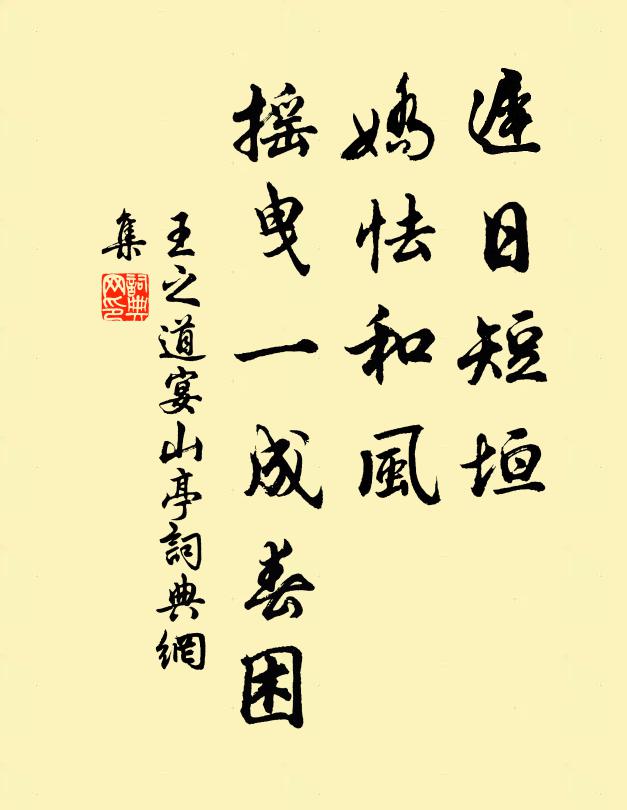 遲日短垣
嬌怯和風
搖曳一成春困
王之道宴山亭詞典網
集
詞典
网印